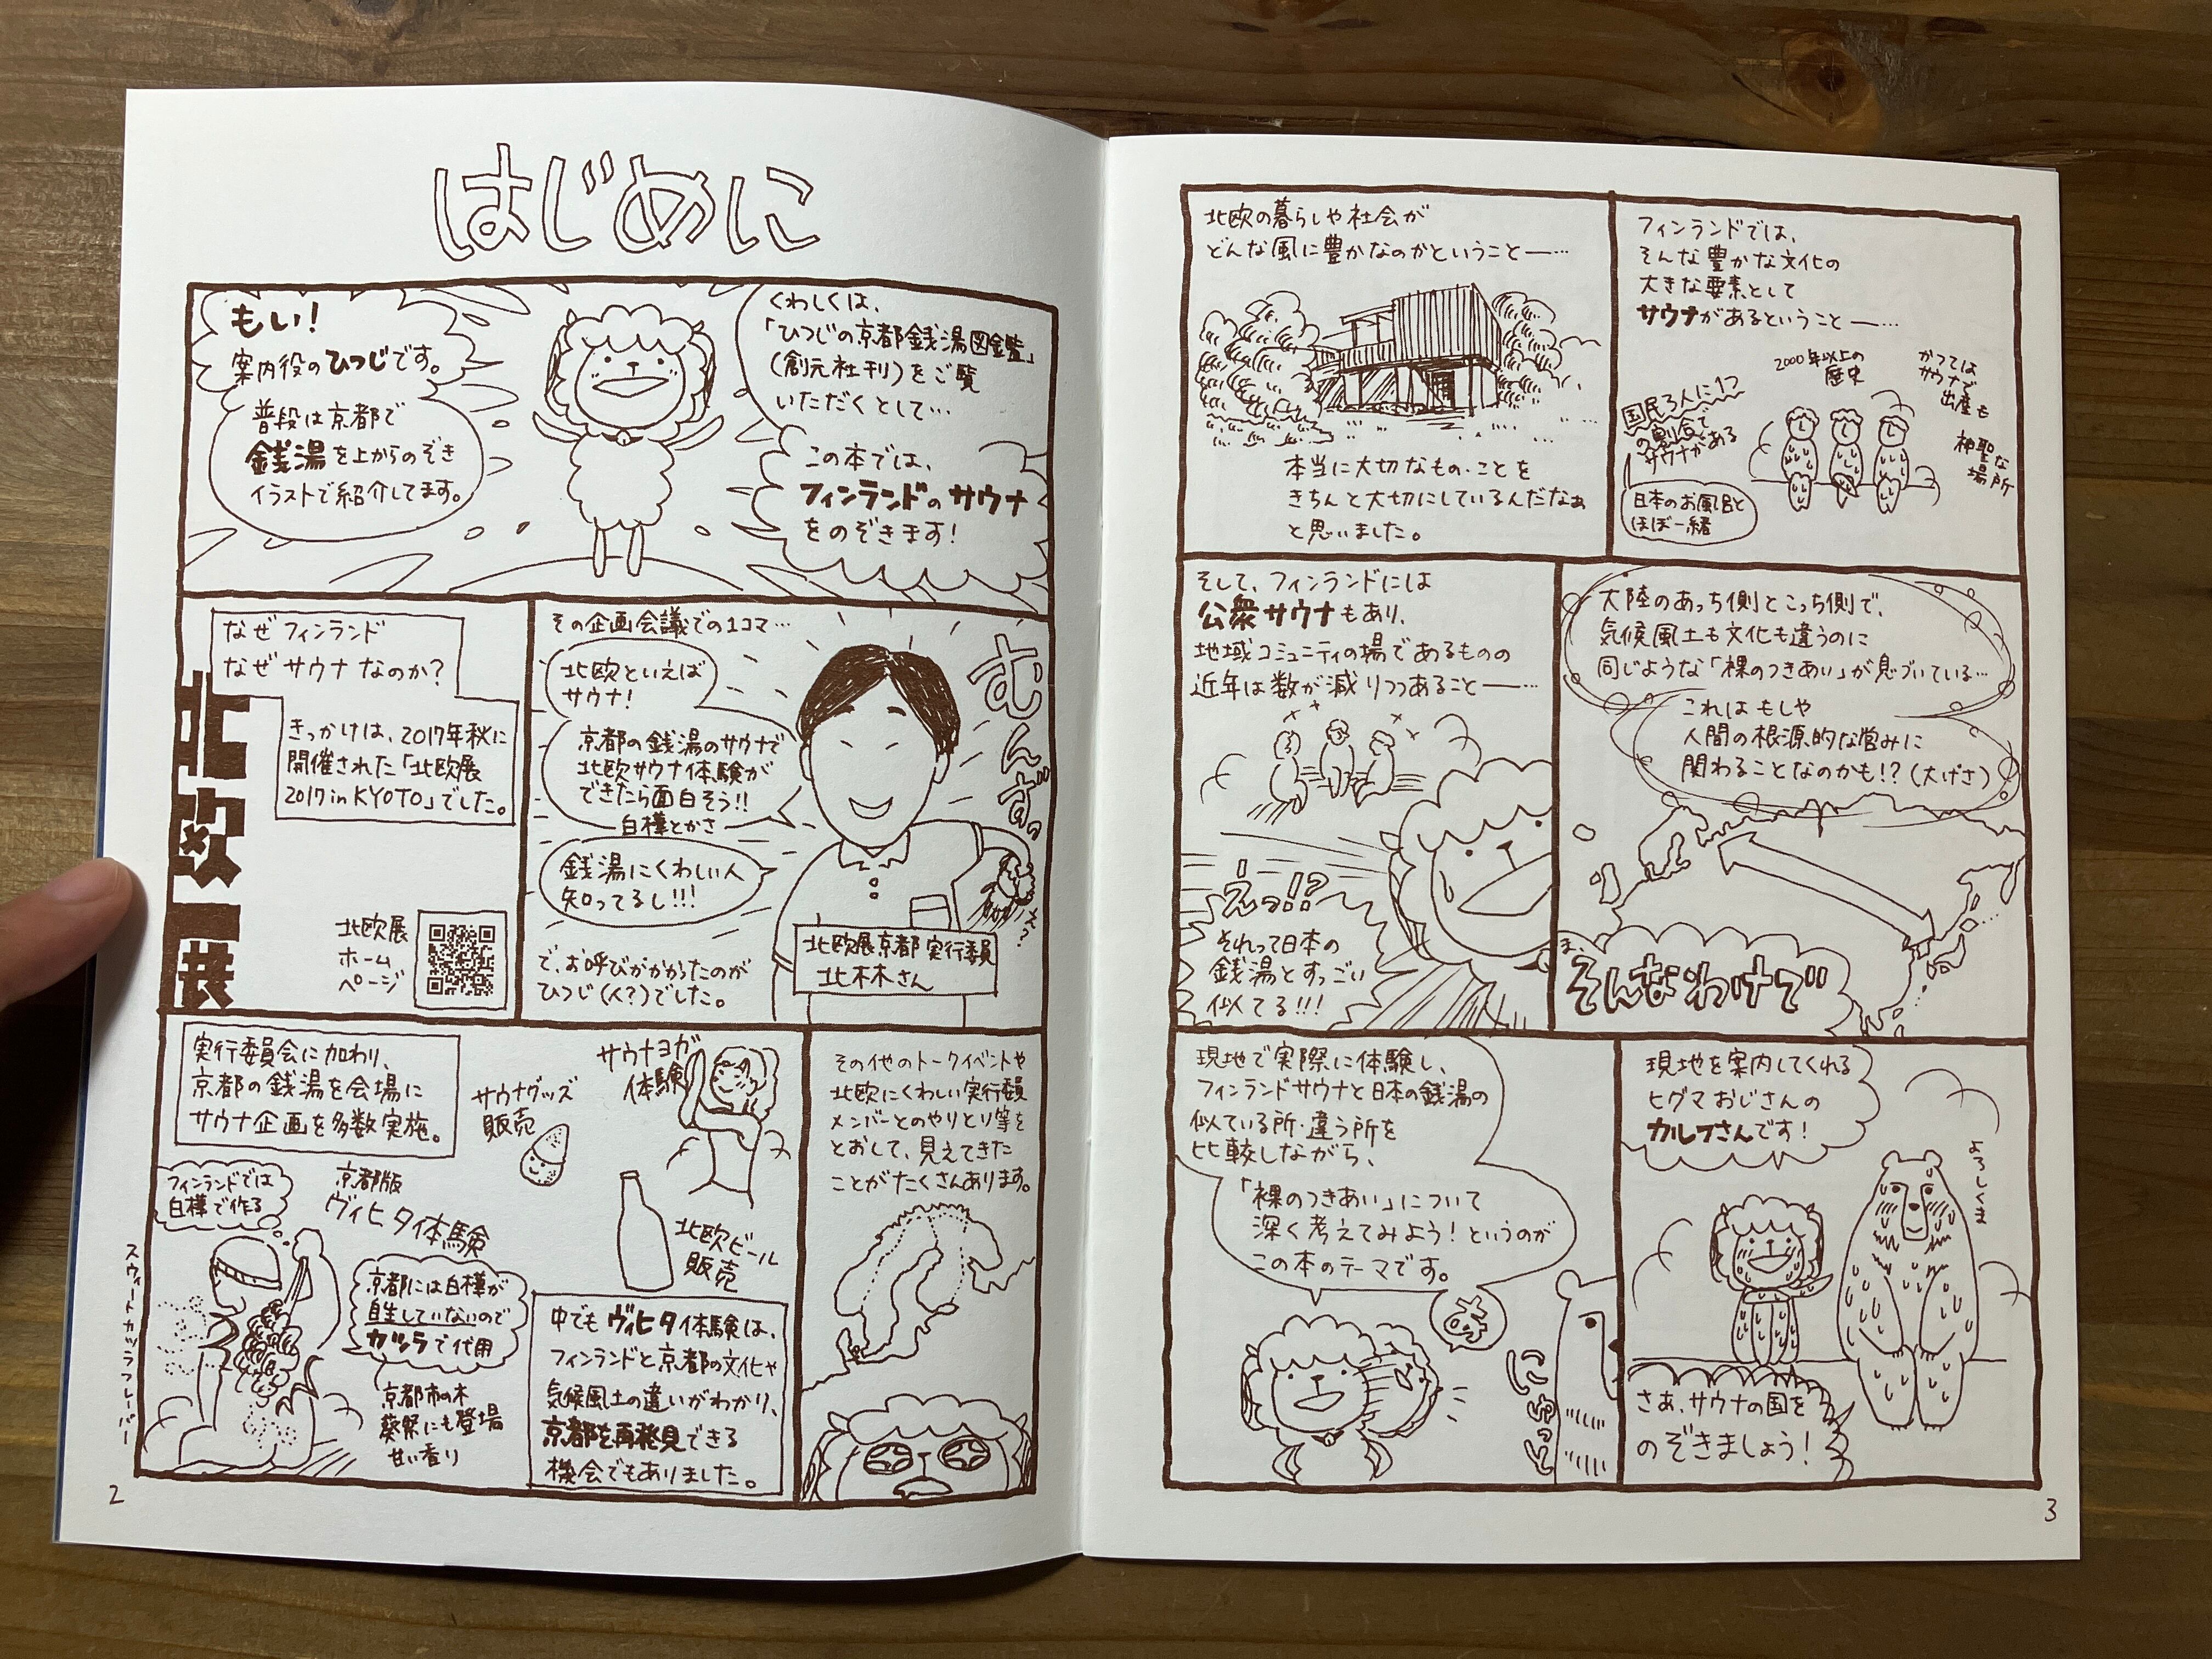 はじめに
もい!
案内役のひつじです。
普段は京都で
銭湯を上からのぞき
イラストで紹介してます。
くわしくは、
「ひつじの京都銭湯図鑑」
(創元社刊)をご覧
いただくとして…
この本では、
フィンランドのサウナ
をのぞきます!
なぜフィンランド
なぜサウナなのか?
きっかけは、2017年秋に
開催された「北欧展
2017 in KYOTO」でした。
北欧展
北欧展
ホーム
ページ
その企画会議での1コマ…
北欧といえば
サウナ!
京都の銭湯のサウナで
北欧サウナ体験が
できたら面白そう!!
白樺とかさ
銭湯にくわしい人
知ってるし!!!
むんずっ
え?
北欧展京都実行委員
北村さん
で、お呼びがかかったのが
ひつじ(人?)でした。
実行委員会に加わり、
京都の銭湯を会場に
サウナ企画を多数実施。
サウナグッズ
販売
サウナヨガ
体験
フィンランドでは
白樺で作る
京都版
ヴィヒタ体験
京都には白樺が
自生していないので
カツラで代用
京都市の木
葵祭にも登場
甘い香り
スウィートカツラフレーバー
北欧ビール
販売
中でもヴィヒタ体験は、
フィンランドと京都の文化や
気候風土の違いがわかり、
京都を再発見できる
機会でもありました。
その他のトークイベントや
北欧にくわしい実行委員
メンバーとのやりとり等を
とおして、見えてきた
ことがたくさんあります。
2
北欧の暮らしや社会が
どんな風に豊かなのかということ――…
本当に大切なもの・ことを
きちんと大切にしているんだなぁ
と思いました。
フィンランドでは、
そんな豊かな文化の
大きな要素として
サウナがあるということ――…
国民3人に1つ
の割合で
サウナがある
日本のお風呂と
ほぼ一緒
2000年以上の
歴史
かつては
サウナで
出産も
神聖な
場所
そして、フィンランドには
公衆サウナもあり、
地域コミュニティの場であるものの
近年は数が減りつつあること――…
えっ!!?
それって日本の
銭湯とすっごい
似てる!!!
大陸のあっち側とこっち側で、
気候風土も文化も違うのに
同じような「裸のつきあい」が息づいている…
これはもしや
人間の根源的な営みに
関わることなのかも!?(大げさ)
ま、
そんなわけで
現地で実際に体験し、
フィンランドサウナと日本の銭湯の
似ている所・違う所を
比較しながら、
「裸のつきあい」について
深く考えてみよう!というのが
この本のテーマです。
む
にゅっと
現地を案内してくれる
ヒグマおじさんの
カルフさんです!
よろしくま
さあ、サウナの国を
のぞきましょう!
3